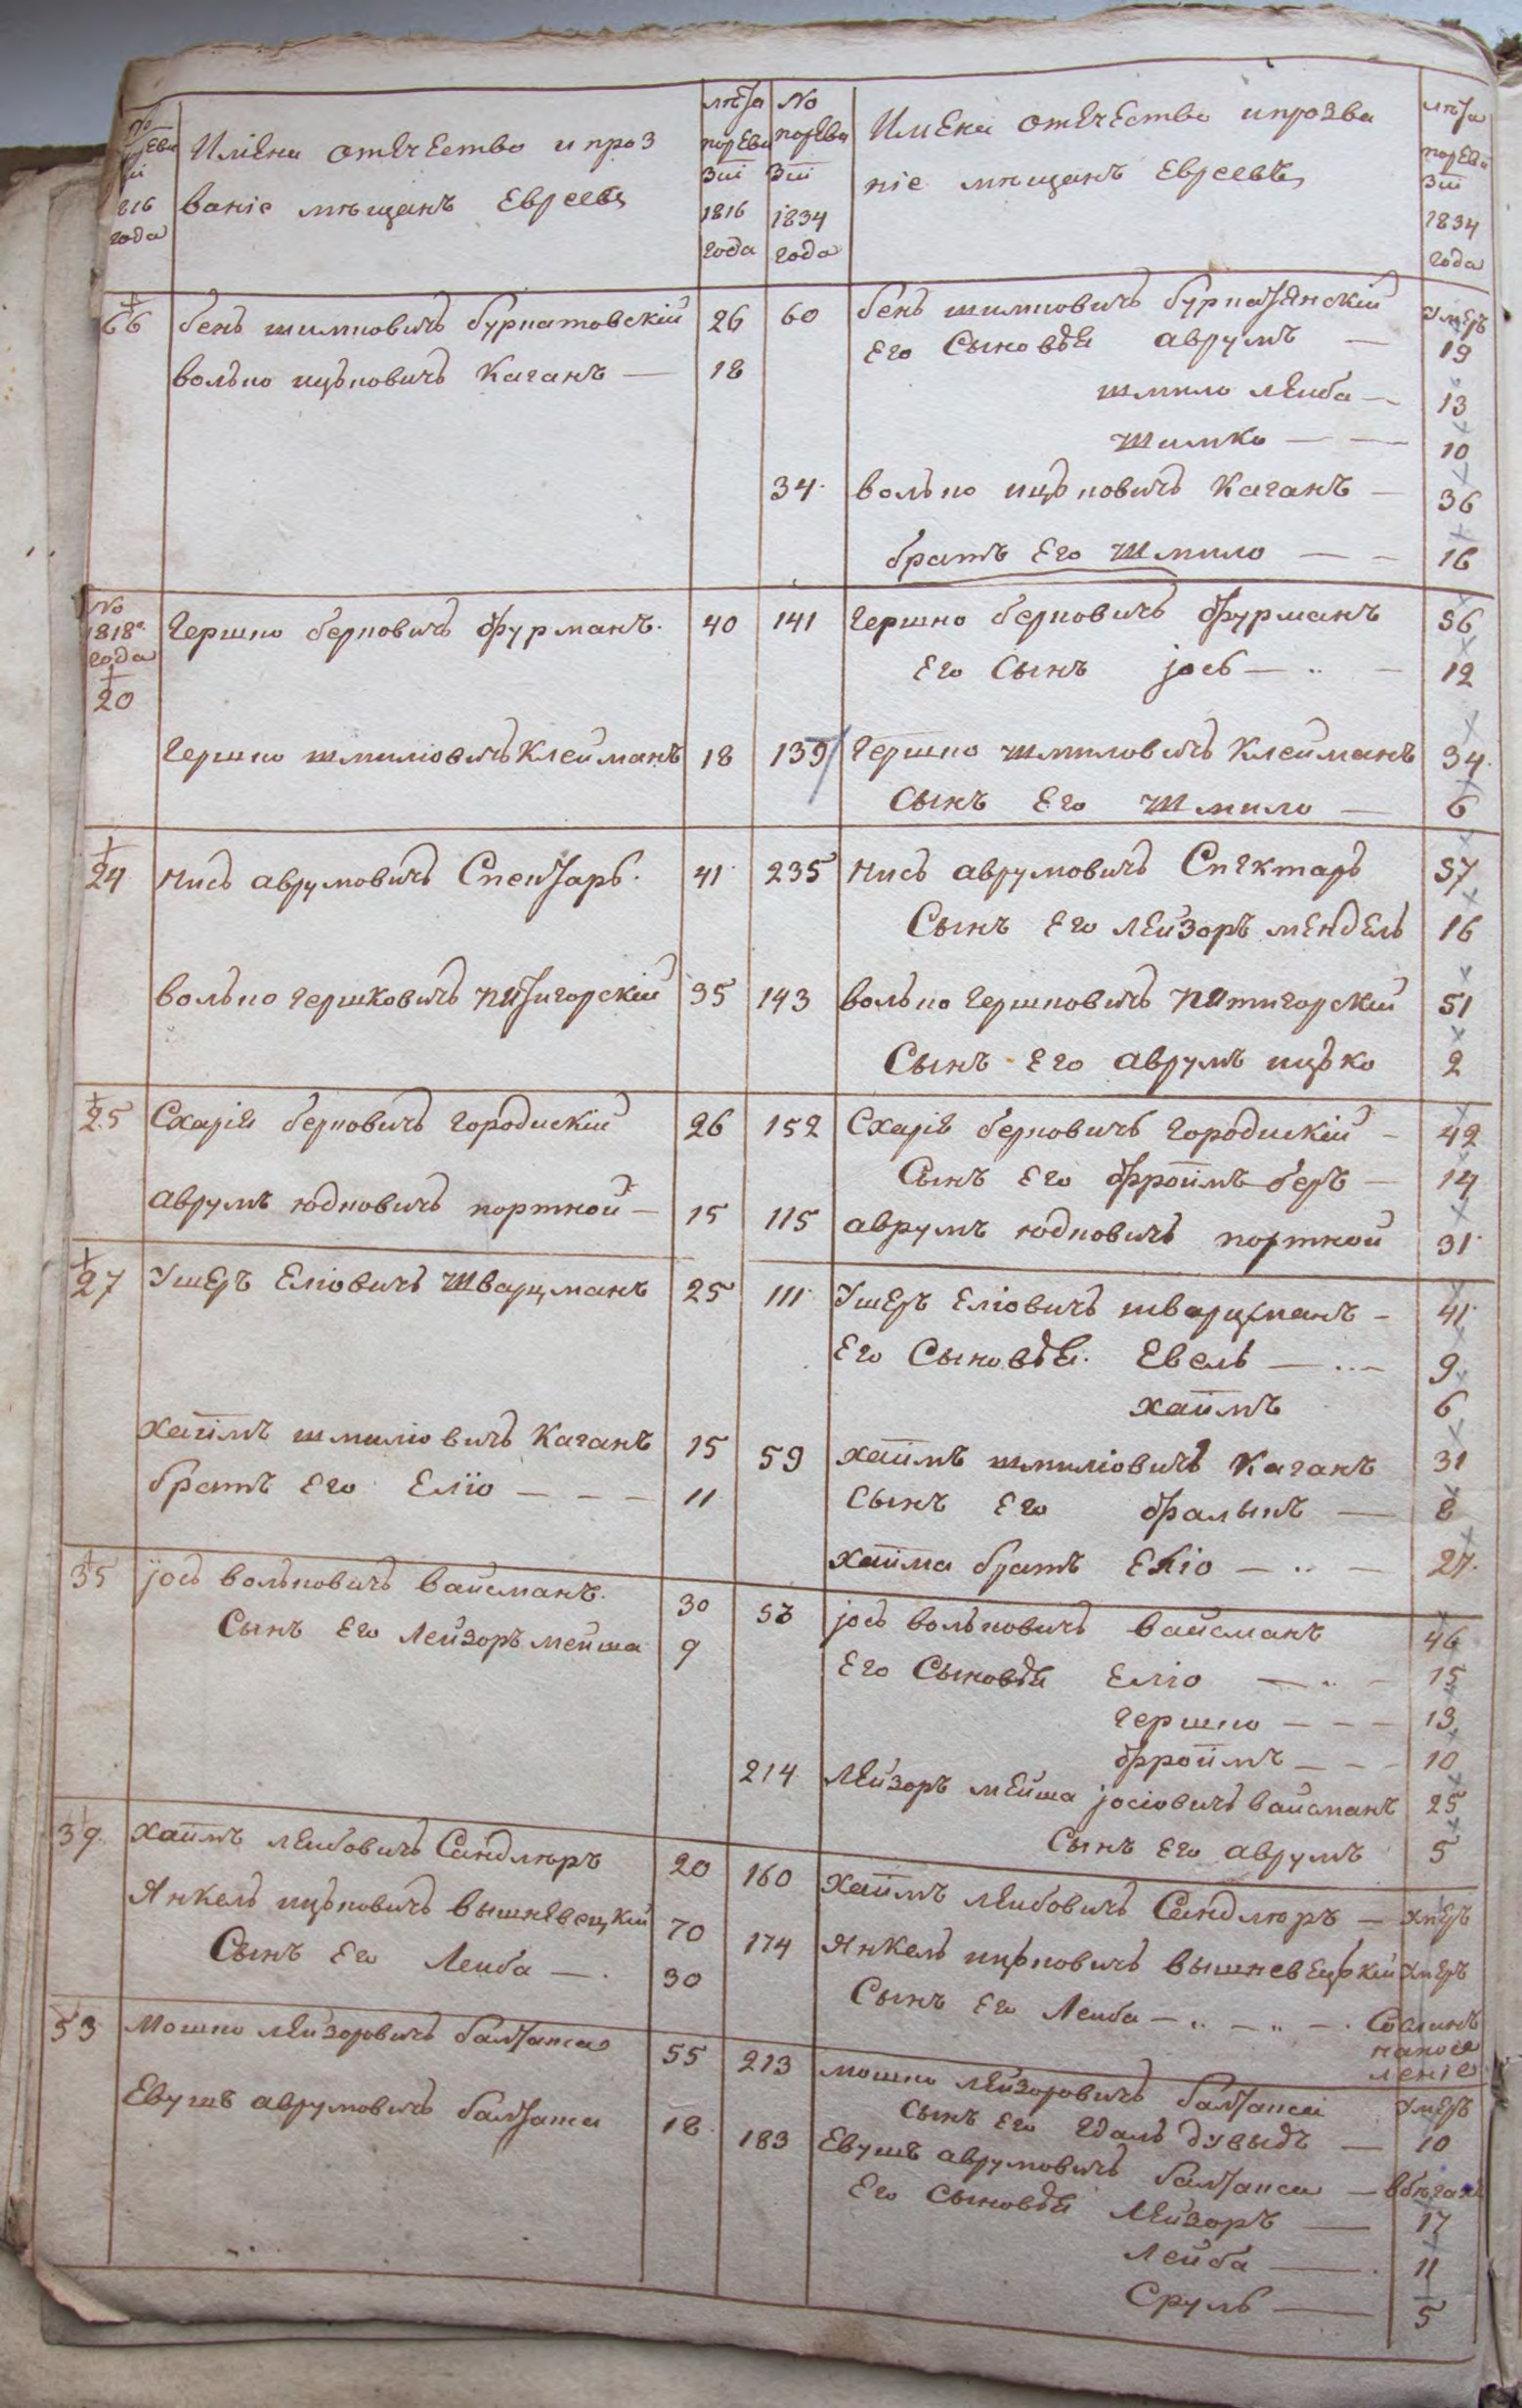 No
ревизіи
1816
года
Имена отечество и проз
ваніе мещанъ Евреевъ
лета
порѣви
зіи
1816
года
No
порѣви
зіи
1834
года
Имена отечество ипрозва
ніе мещанъ Евреевъ
лета
порѣви
зіи
1834
года
66 бенъ шимковичъ буркатовскій 26 60 бенъ шимковичъ буркатянскій умеръ
Его Сыновъя аврумъ — 19
шмило леиба — 13
Шимко — — 10
волько ицъковичъ Каганъ — 18
34 волько ицъковичъ Каганъ — 36
братъ Его Шмило — — 16
No
1818го
года
20 Гершко берковичъ фурманъ 40 141 Гершко берковичъ фурманъ 56
Его Сынъ іось — 12
Гершко шмиліовичъ Клейманъ 18 139 Гершко шмиловичъ Клейманъ 34
Сынъ Его Шмило — 6
24 Нись аврумовичъ Спектарь 41 235 Нись аврумовичъ Спектаръ 57
Сынъ Его лейзоръ мендель 16
волько гершковичъ пятигорскій 35 143 волько гершковичъ пятигорскій 51
Сынъ Его аврумъ ицько 2
25 Схарія берковичъ городискій 26 152 Схарія берковичъ городискій — 42
Сынъ Его фроимъ беръ — 14
аврумъ юдковичъ портной — 15 115 аврумъ юдковичъ портной 31
27 Ушеръ Еліовичъ Шварцманъ 25 111 Ушеръ Еліовичъ шварцманъ — 41
Его Сыновъя Евель — 9
хаимъ 6
хаимъ шмиліовичъ Каганъ 15 59 хаимъ шмиліовичъ Каганъ 31
братъ Его Еліо — — — 11 Сынъ Его фалыкъ — 8
хаима братъ Еліо — 27
35 іось вольковичъ вайсманъ 30 53 іось вольковичъ вайсманъ 46
Сынъ Его лейзоръ мейша 9 Его Сыновъя Еліо — 15
гершко — — — 13
фроимъ — — 10
214 Лейзоръ мейша іосіовичъ вайсманъ 25
Сынъ Его аврумъ 5
39 хаимъ лейбовичъ Сандлюръ 20 160 хаимъ лейбовичъ Сандлюръ — умеръ
Янкель ицьковичъ вышневецкій 70 174 Янкель ицьковичъ вышневецькій умеръ
Сынъ Его Лейба — 30 Сынъ Его Лейба — Сосланъ
напосе
леніе
53 Мошко лейзоровичъ балтакса 55 213 мошко лейзоровичъ балтакса умеръ
Сынъ Его гдаль дувыдъ — 10
Евушъ аврумовичъ балтакса 18 183 Евушъ аврумовичъ балтакса — вбегахъ
Его Сыновъя Лейзоръ — 17
Лейба — 11
Сруль — 5